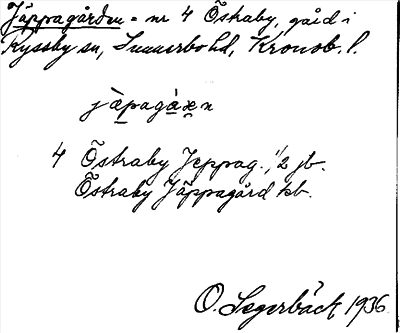 Jäppagården = nr 4 Östraby, gård i
Ryssby sn, Sunnerbo hd, Kronob. l.
jäpagàṛn
4 Östraby Jeppag. 1/2 jb.
Östraby Jäppagård kb.
O. Segerbäck 1936